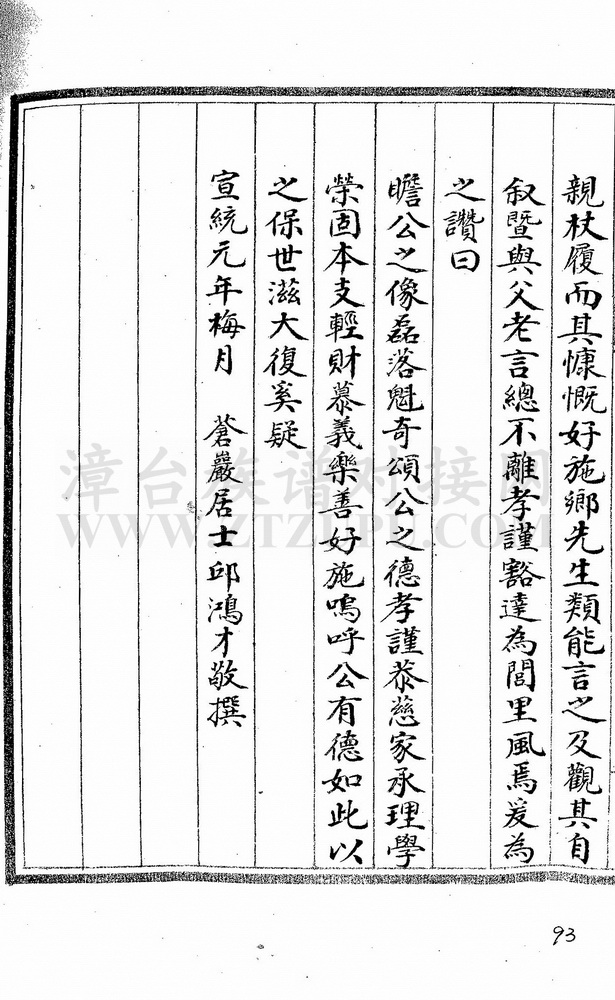 親杖履而其慷慨好施鄉先生類能言之及觀其自
敘暨與父老言總不離孝謹豁達為閭里風焉爰為
之讚曰
瞻公之像磊落魁奇頌公之德孝謹恭慈家承理學
榮固本支輕財慕義樂善好施嗚呼公有德如此以
之保世滋大復奚疑
宣統元年梅月 蒼巖居士邱鴻才敬撰
漳台族谱对接网
WWW.ZTZUPU.COM
93